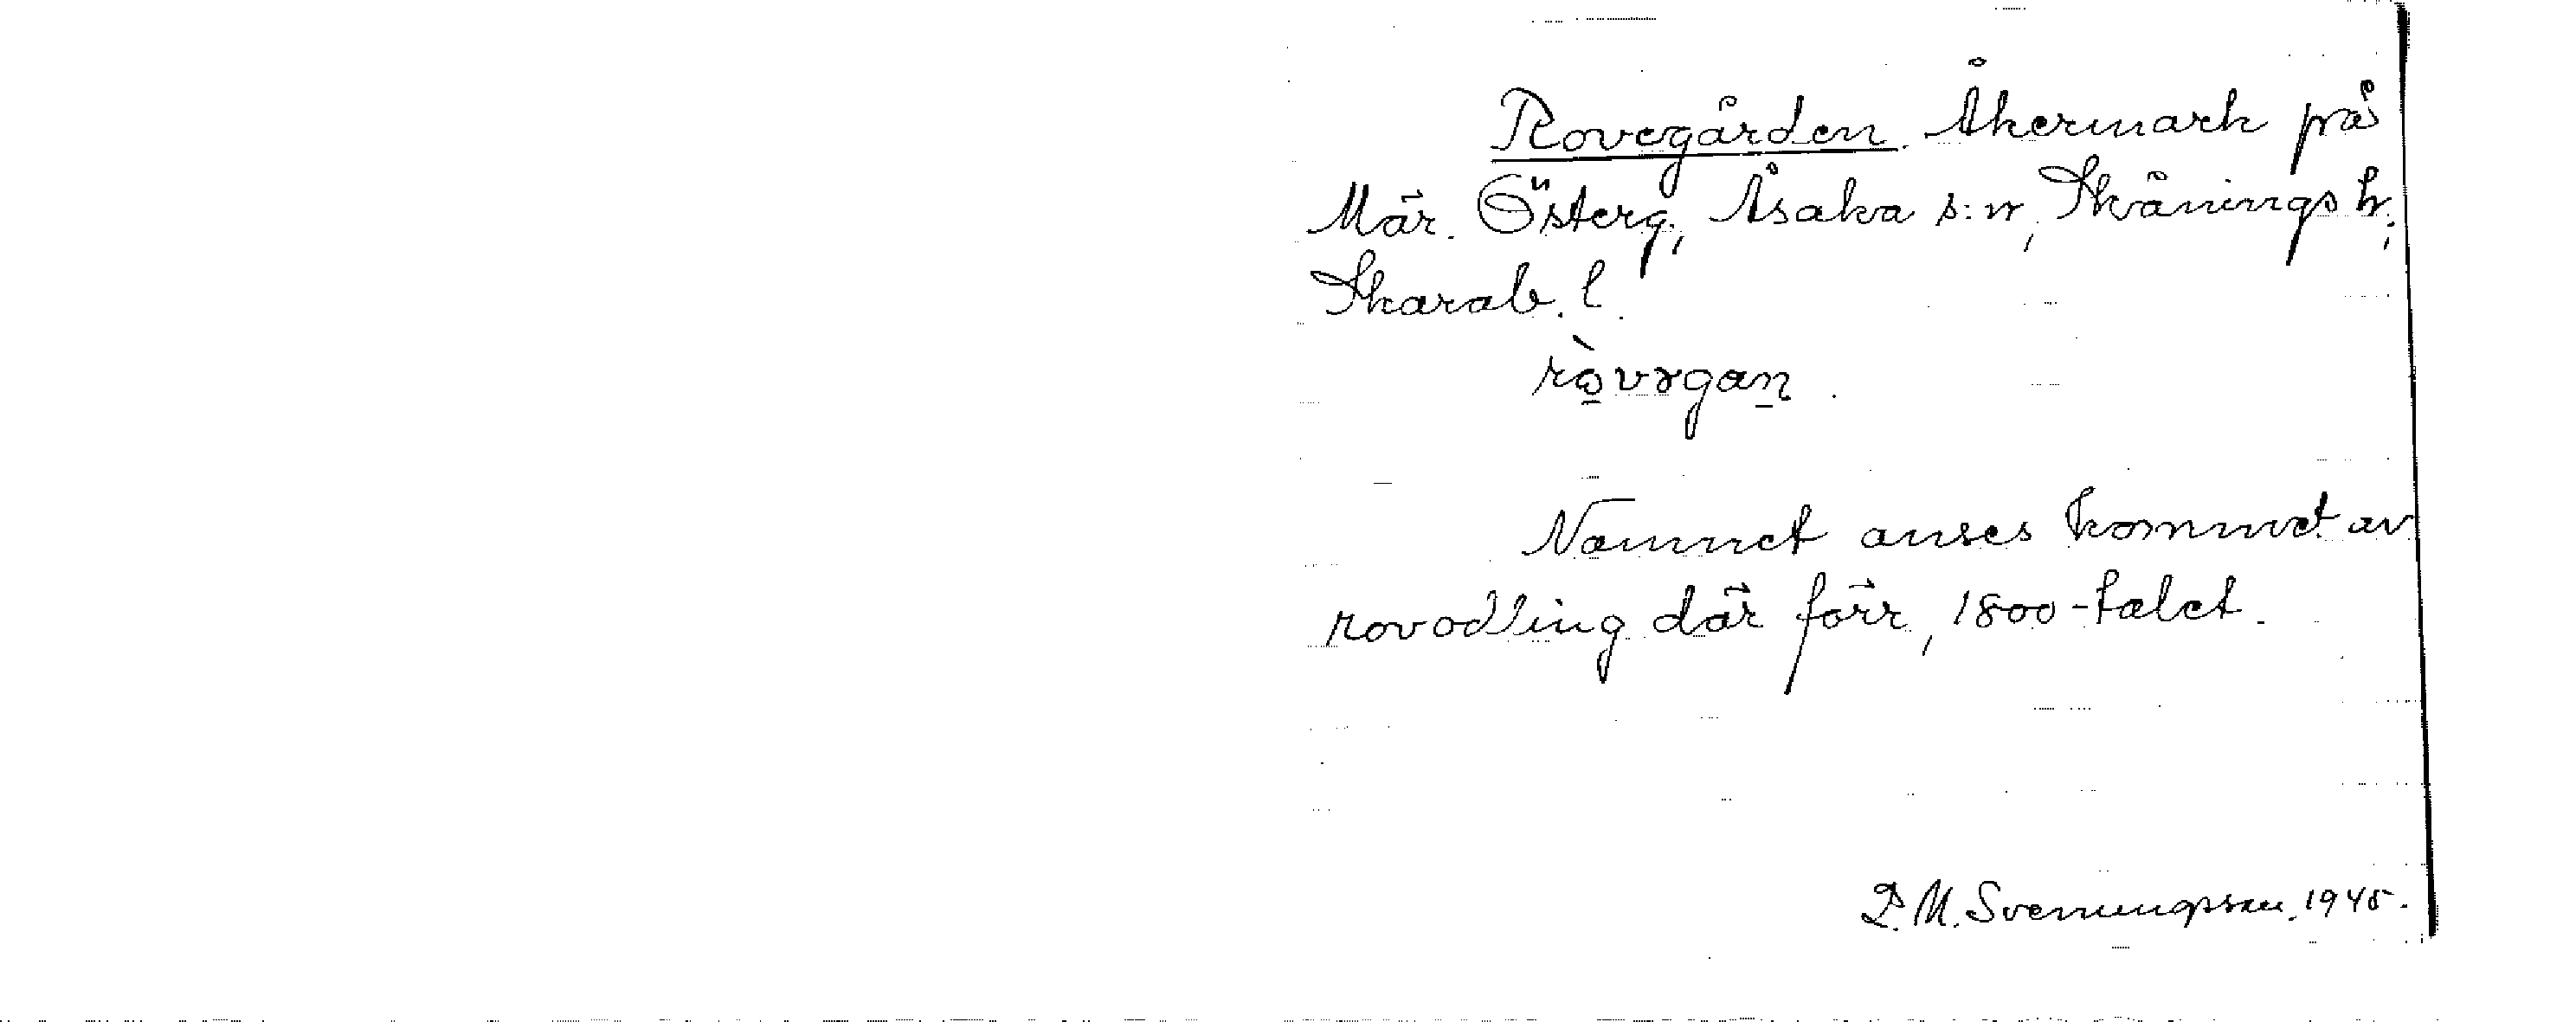 Rovegården. Åkermark på
Mär. Österg., Åsaka s:n, Skånings h.,
Skarab. l.
ròvəgan.
Namnet anses kommet av
rovodling där förr, 1800-talet.
P. M. Svenungsson. 1945.